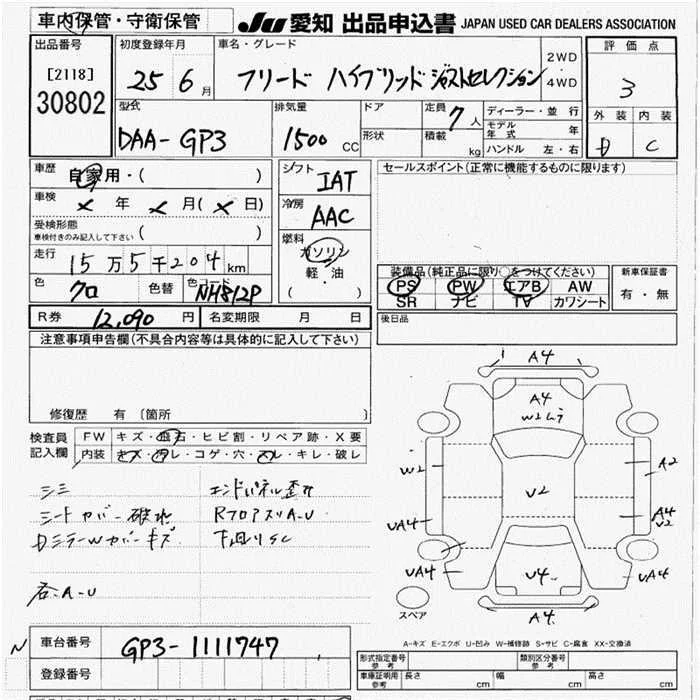 車内保管・守衛保管 JU 愛知 出品申込書 JAPAN USED CAR DEALERS ASSOCIATION
出品番号 初度登録年月 車名・グレード 2WD 評価点
[2118] 25 6 月 フリード ハイブリッド ジャストセレクション 4WD 3
30802
型式 排気量 ドア 定員 7 人 ディーラー・並行 外装 内装
DAA-GP3 1500 CC 形状 積載 kg モデル年式 年 D C
ハンドル 左・右
車歴 自家用・( ) シフト IAT セールスポイント(正常に機能するものに限ります)
車検 × 年 × 月(× 日) 冷房 AAC
受検形態
車検付きのみ記入して下さい ( )
燃料 ガソリン
走行 15万5千204 km 軽・油
( )
装備品(純正品に限り○をつけてください) 新車保証書
色 クロ 色替 色コード NH812P PS PW エアB AW 有・無
SR ナビ TV カワシート
R券 12,090 円 名変期限 月 日 後日品
注意事項申告欄(不具合内容等は具体的に記入して下さい)
修復歴 有 〔箇所 〕
検査員 FW キズ・飛石・ヒビ割・リペア跡・X要
記入欄 内装 キズ・汚レ・コゲ・穴・スレ・キレ・破レ
シミ エンドパネル歪ミ
シートカバー破れ RフロアスリA-U
DミラーWカバーキズ 下廻りSC
各A-U
A4
A4
W2ムラ
W2 A2
V2
UA4 A4
V2
UA4 V4 UA4
スペア A4
A-キズ E-エクボ U-凹み W-補修跡 S-サビ C-腐食 XX-交換済
N 車台番号 GP3-1111747
登録番号
形式指定番号 参考 類別区分番号 参考
車庫証明用 参考 長さ cm 幅 cm 高さ cm